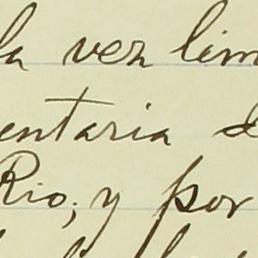 la vez lim
entaria d
Rio; y por